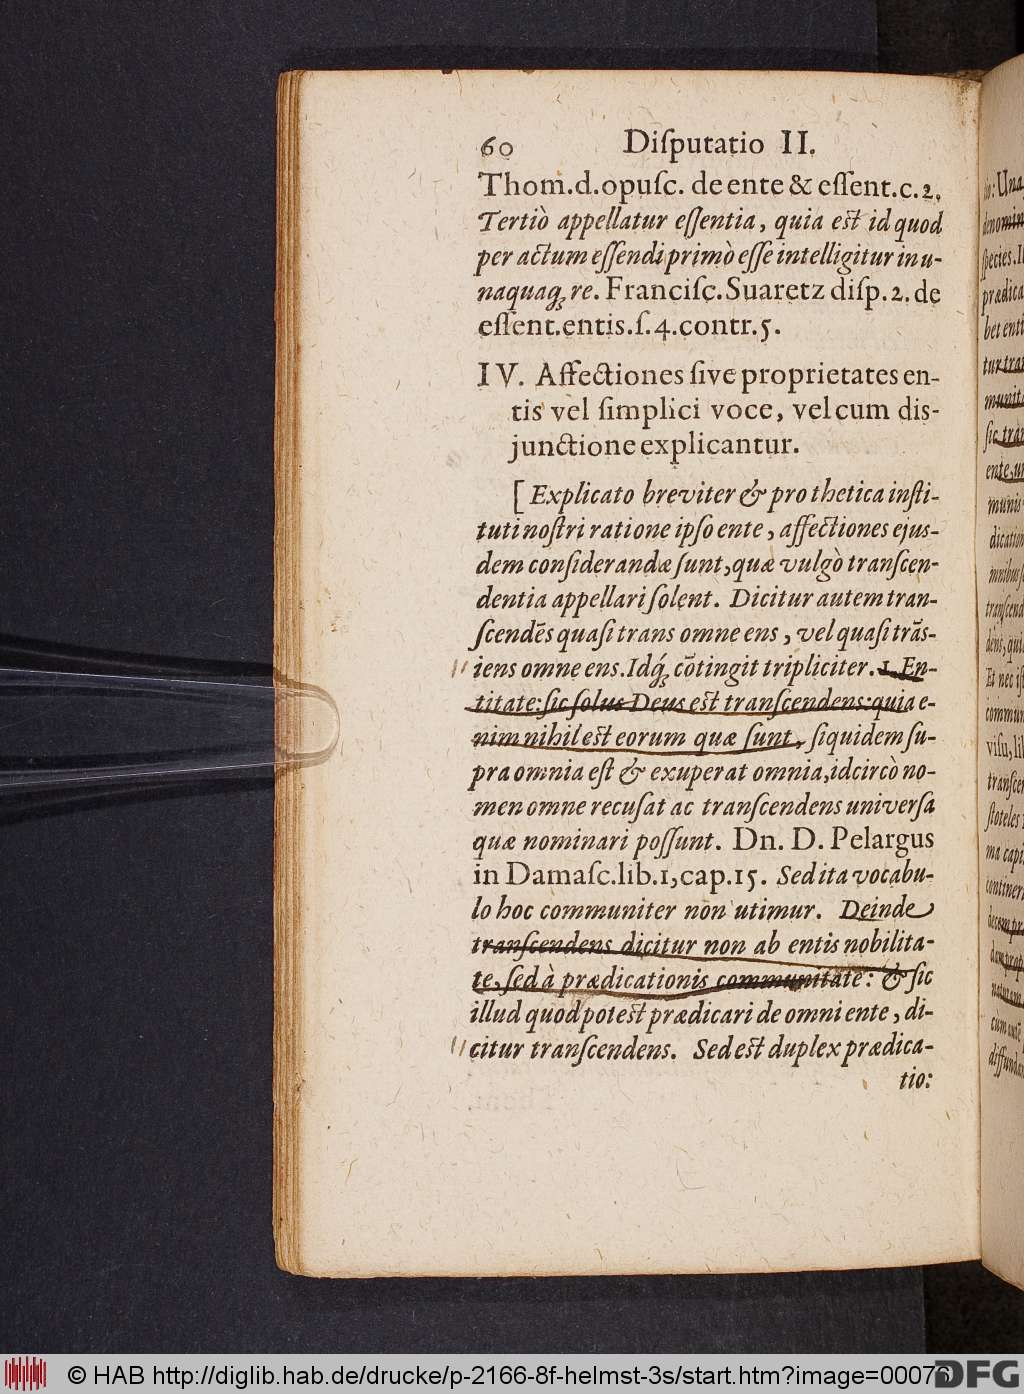 60 Diſputatio II.
Thom.d.opuſc. de ente & eſſent.c.2.
Tertiò appellatur eſſentia, quia est id quod
per actum eſſendi primò eſſe intelligitur in u-
naquaq́ꝫ re. Franciſc. Suaretz diſp.2. de
eſſent.entis.ſ.4.contr.5.
IV. Affectiones ſive proprietates en-
tis vel ſimplici voce, vel cum dis-
junctione explicantur.
[Explicato breviter & prothetica inſti-
tuti noſtri ratione ipſo ente, affectiones ejus-
dem conſiderandæ ſunt, quæ vulgò tranſcen-
dentia appellari ſolent. Dicitur autem tran-
ſcendẽs quaſi trans omne ens, vel quaſi trãs-
iens omne ens. Idq́ꝫ cõtingit tripliciter. 1. En-
titate: ſic ſolus Deus est tranſcendens: quia e-
nim nihil est eorum quæ ſunt, ſiquidem ſu-
pra omnia eſt & exuperat omnia, idcircò no-
men omne recuſat ac tranſcendens univerſa
quæ nominari poſſunt. Dn. D. Pelargus
in Damaſc.lib.1, cap.15. Sed ita vocabu-
lo hoc communiter non utimur. Deinde
tranſcendens dicitur non ab entis nobilita-
te, ſed à prædicationis communitate: & ſic
illud quod potest prædicari de omni ente, di-
citur tranſcendens. Sed est duplex prædica-
tio:
: Una
denomin
ſpecies. I
prædica
bet enti
tur tran
munita
ſic tran
ente, un
munis
dication
tranſcend
dens, qui
Et nec iſt
commun
viſu, li
tranſcen
ſtoteles
ma capi
contineri
diffunda
© HAB http://diglib.hab.de/drucke/p-2166-8f-helmst-3s/start.htm?image=00076
DFG